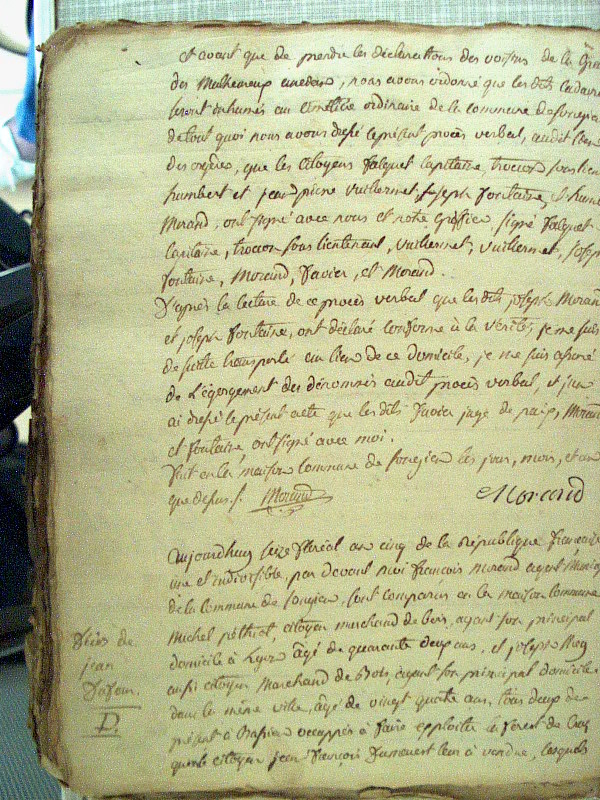 et avant que de prendre les déclarations des voisins de la
des malheureux, nous avons ordonné que les dits cadavres
seront inhumés au cimetière ordinaire de la commune de songieu
de tout quoi nous avons dressé le présent procès verbal, audit lieu
que les citoyens falquet capitaine, trocon sous lieu
humbert et jean pierre vuillermet, joseph fontaine, et
Morand, ont signé avec nous et notre Greffier, signé falquet
capitaine, trocon sous lieutenant, vuillermet, vuillermet, joseph
fontaine, Morand, favier, et Morand.
D'après la lecture de ce procès verbal que les dits joseph Morand
et joseph fontaine, ont déclaré conforme à la vérité, je me suis
de suite transporté au lieu de ce domicile, je me suis assuré
de l'égorgement des dénommés audit procès verbal, et j'en
ai dressé le présent acte que les dits favier juge de paix, Morand
et fontaine, ont signé avec moi.
fait en la maison commune de songieu les jour, mois, et an
que dessus. Morand Morand
Aujourdhuy seize floréal an cinq de la République française
une et indivisible, par devant moi françois morand agent
de la commune de songieu, sont comparus en la maison commune
Michel, citoyen marchand de bois, ayant son principal
domicile à Lyon âgé de quarante deux ans, et joseph Rey
aussi citoyen Marchand de Bois, ayant son principal domicile
dans la même ville, âgé de vingt quatre ans, tous deux de
présent à occuppés à faire exploiter la forest de
que le citoyen jean françois leur a vendue, lesquels
Décès de
jean
Dufour.
D.